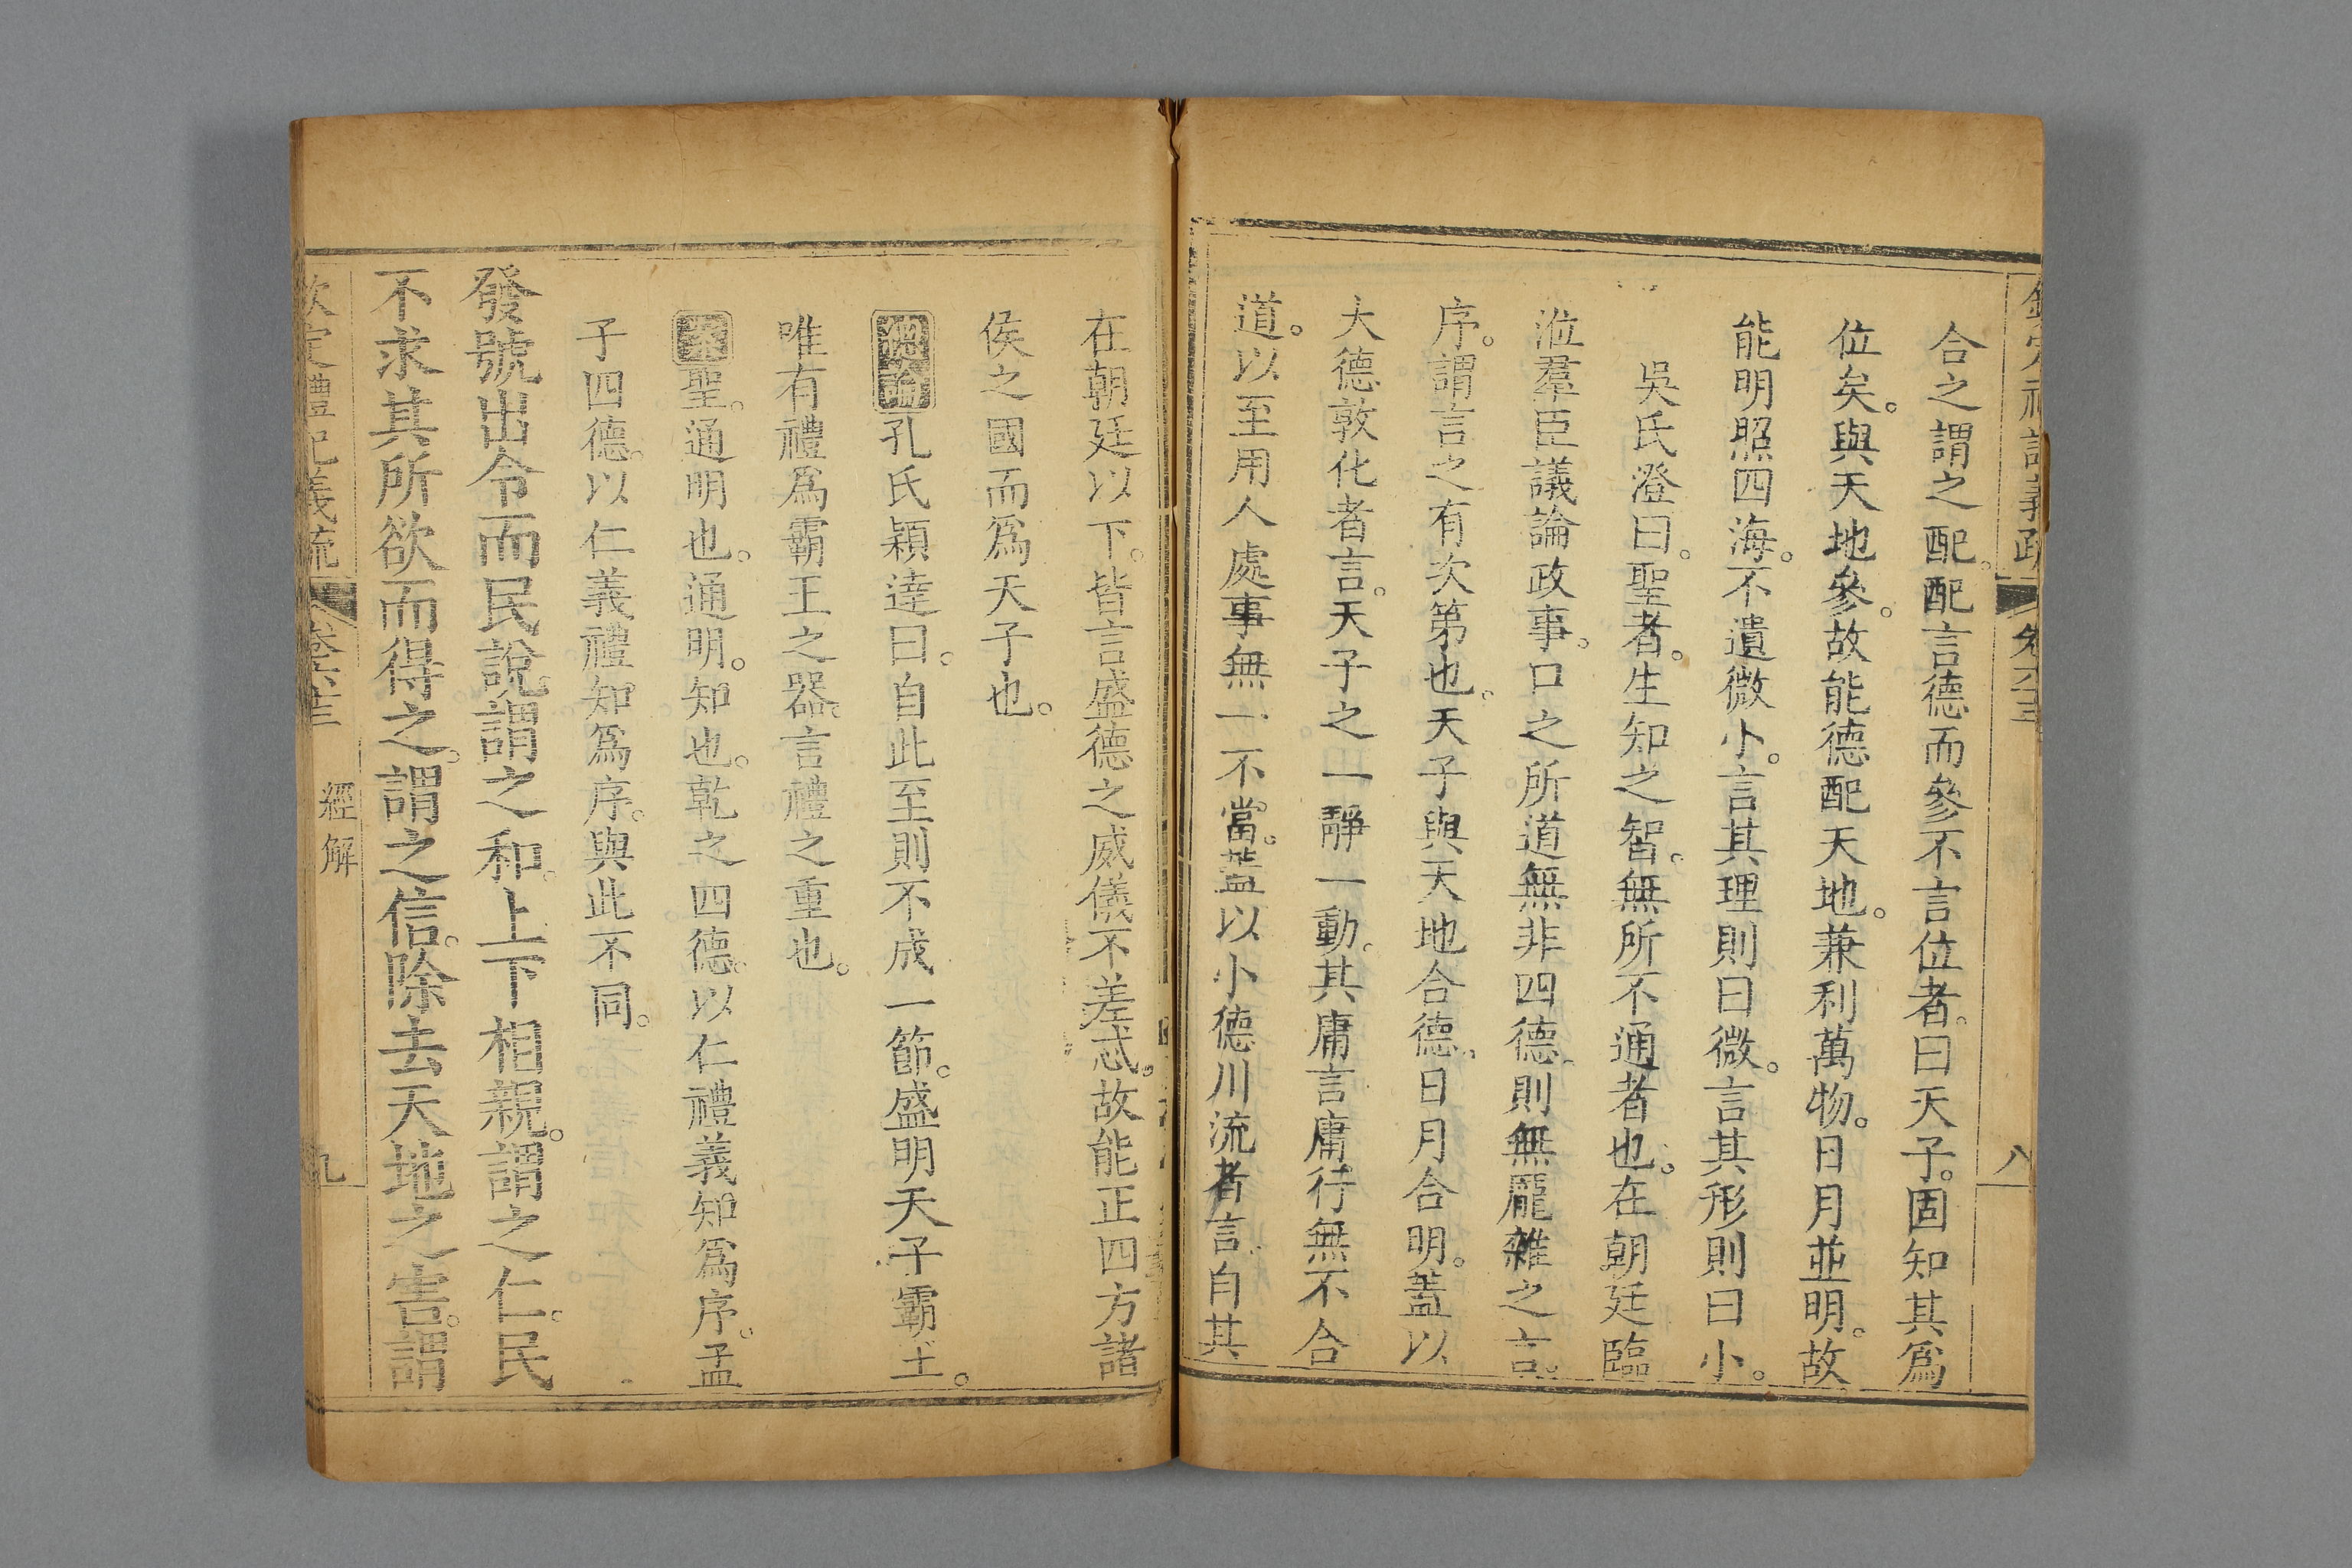 合之謂之配。配言德而參不言位者。曰天子。固知其爲
位矣。與天地參。故能德配天地。兼利萬物。日月並明。故
能明照四海。不遺微小。言其理則曰微。言其形則曰小。
吳氏澄曰。聖者。生知之智。無所不通者也。在朝廷臨
涖羣臣議論政事。口之所道無非四德。則無龎雜之言。
序。謂言之有次第也。天子與天地合德。日月合明。蓋以
大德敦化者言。天子之一靜一動。其庸言庸行無不合
道。以至用人處事無一不當。蓋以小德川流者言。自其
在朝廷以下。皆言盛德之威儀不差忒。故能正四方諸
侯之國而爲天子也。
總論孔氏穎達曰。自此至則不成一節。盛明天子霸王。
唯有禮爲霸王之器。言禮之重也。
案聖。通明也。通明。知也。乾之四德。以仁禮義知爲序。孟
子四德。以仁義禮知爲序。與此不同。
發號出令而民說。謂之和。上下相親。謂之仁。民
不求其所欲而得之。謂之信。除去天地之害。謂
欽定禮記義疏 卷六十三 經解 九